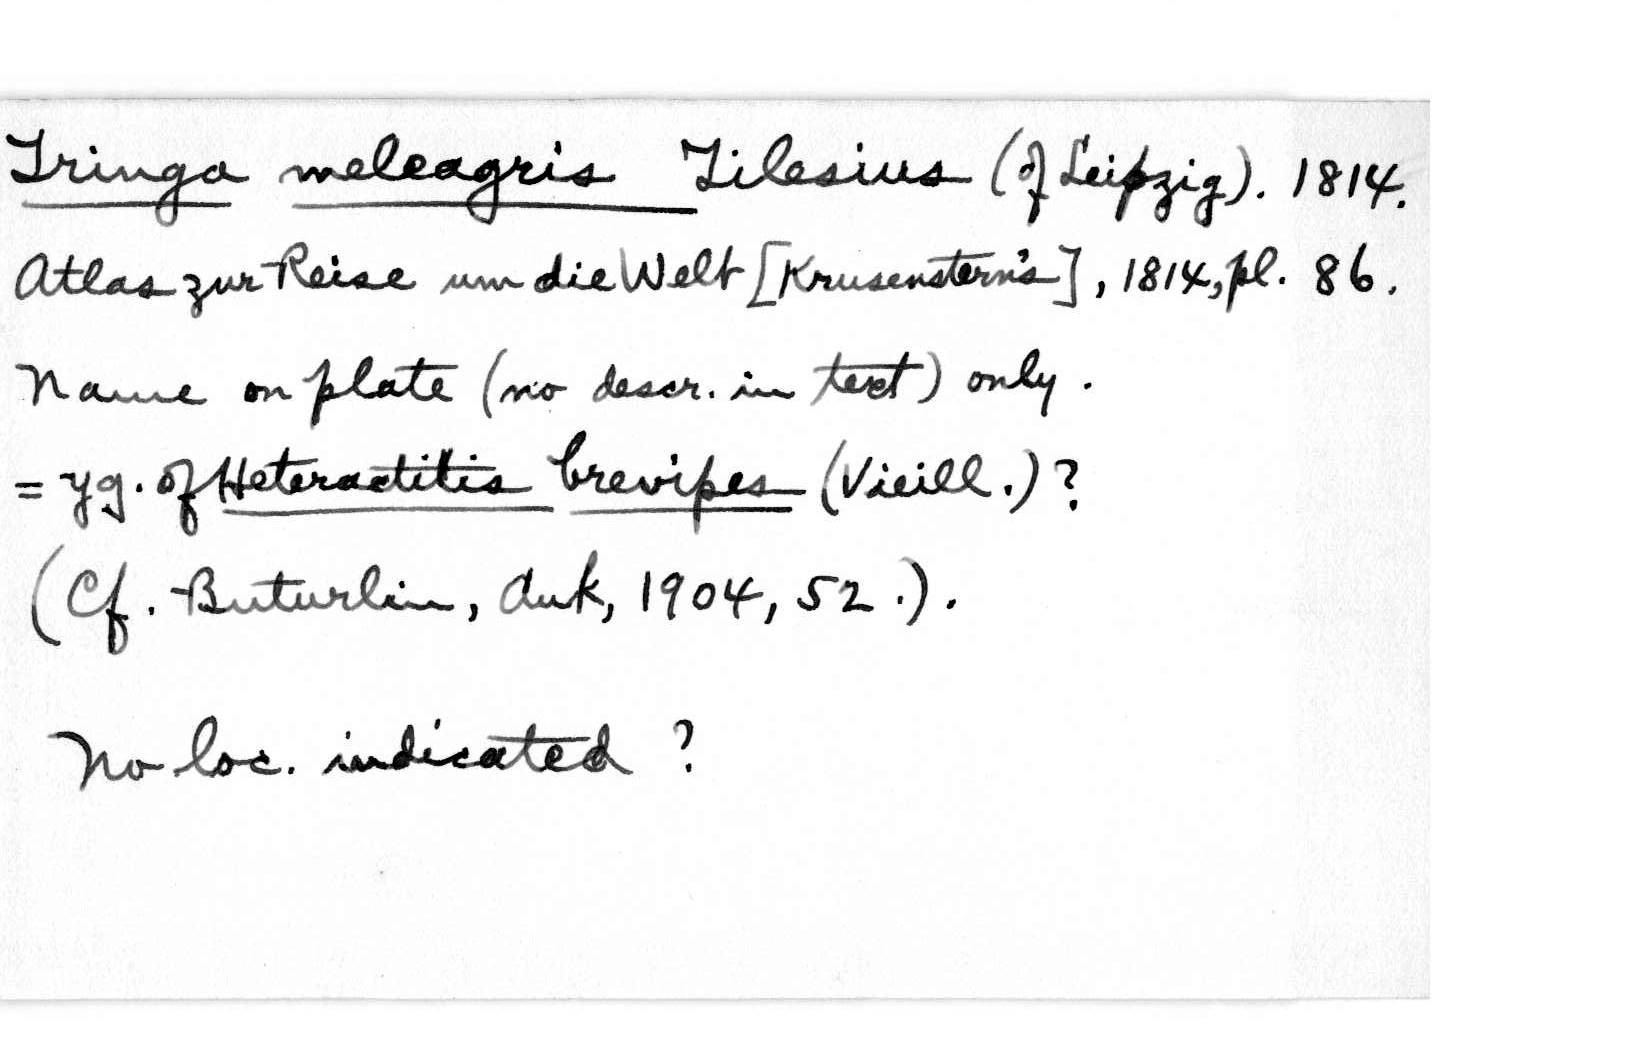 Tringa meleagris Tilesius (of Leipzig). 1814.
Atlas zur Reise um die Welt [Krusenstern's], 1814, pl. 86.
Name on plate (no descr. in text) only.
= yg. of Heteractitis brevipes (Vieill.)?
(Cf. Buturlin, Auk, 1904, 52.).
No loc. indicated?